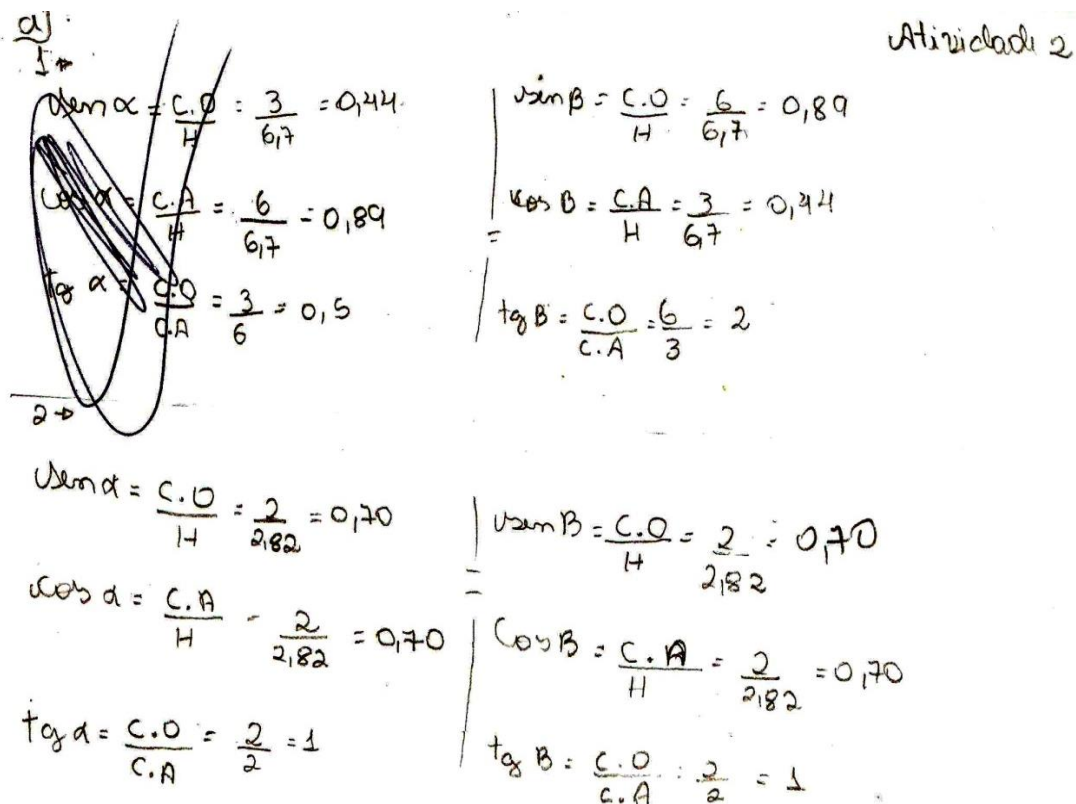 a)
Atividade 2
1→
sen α = C.O/H = 3/6,7 = 0,44
cos α = C.A/H = 6/6,7 = 0,89
tg α = C.O/C.A = 3/6 = 0,5
sen B = C.O/H = 6/6,7 = 0,89
cos B = C.A/H = 3/6,7 = 0,44
tg B = C.O/C.A = 6/3 = 2
2→
sen α = C.O/H = 2/2,82 = 0,70
cos α = C.A/H = 2/2,82 = 0,70
tg α = C.O/C.A = 2/2 = 1
sen B = C.O/H = 2/2,82 = 0,70
Cos B = C.A/H = 2/2,82 = 0,70
tg B = C.O/C.A = 2/2 = 1